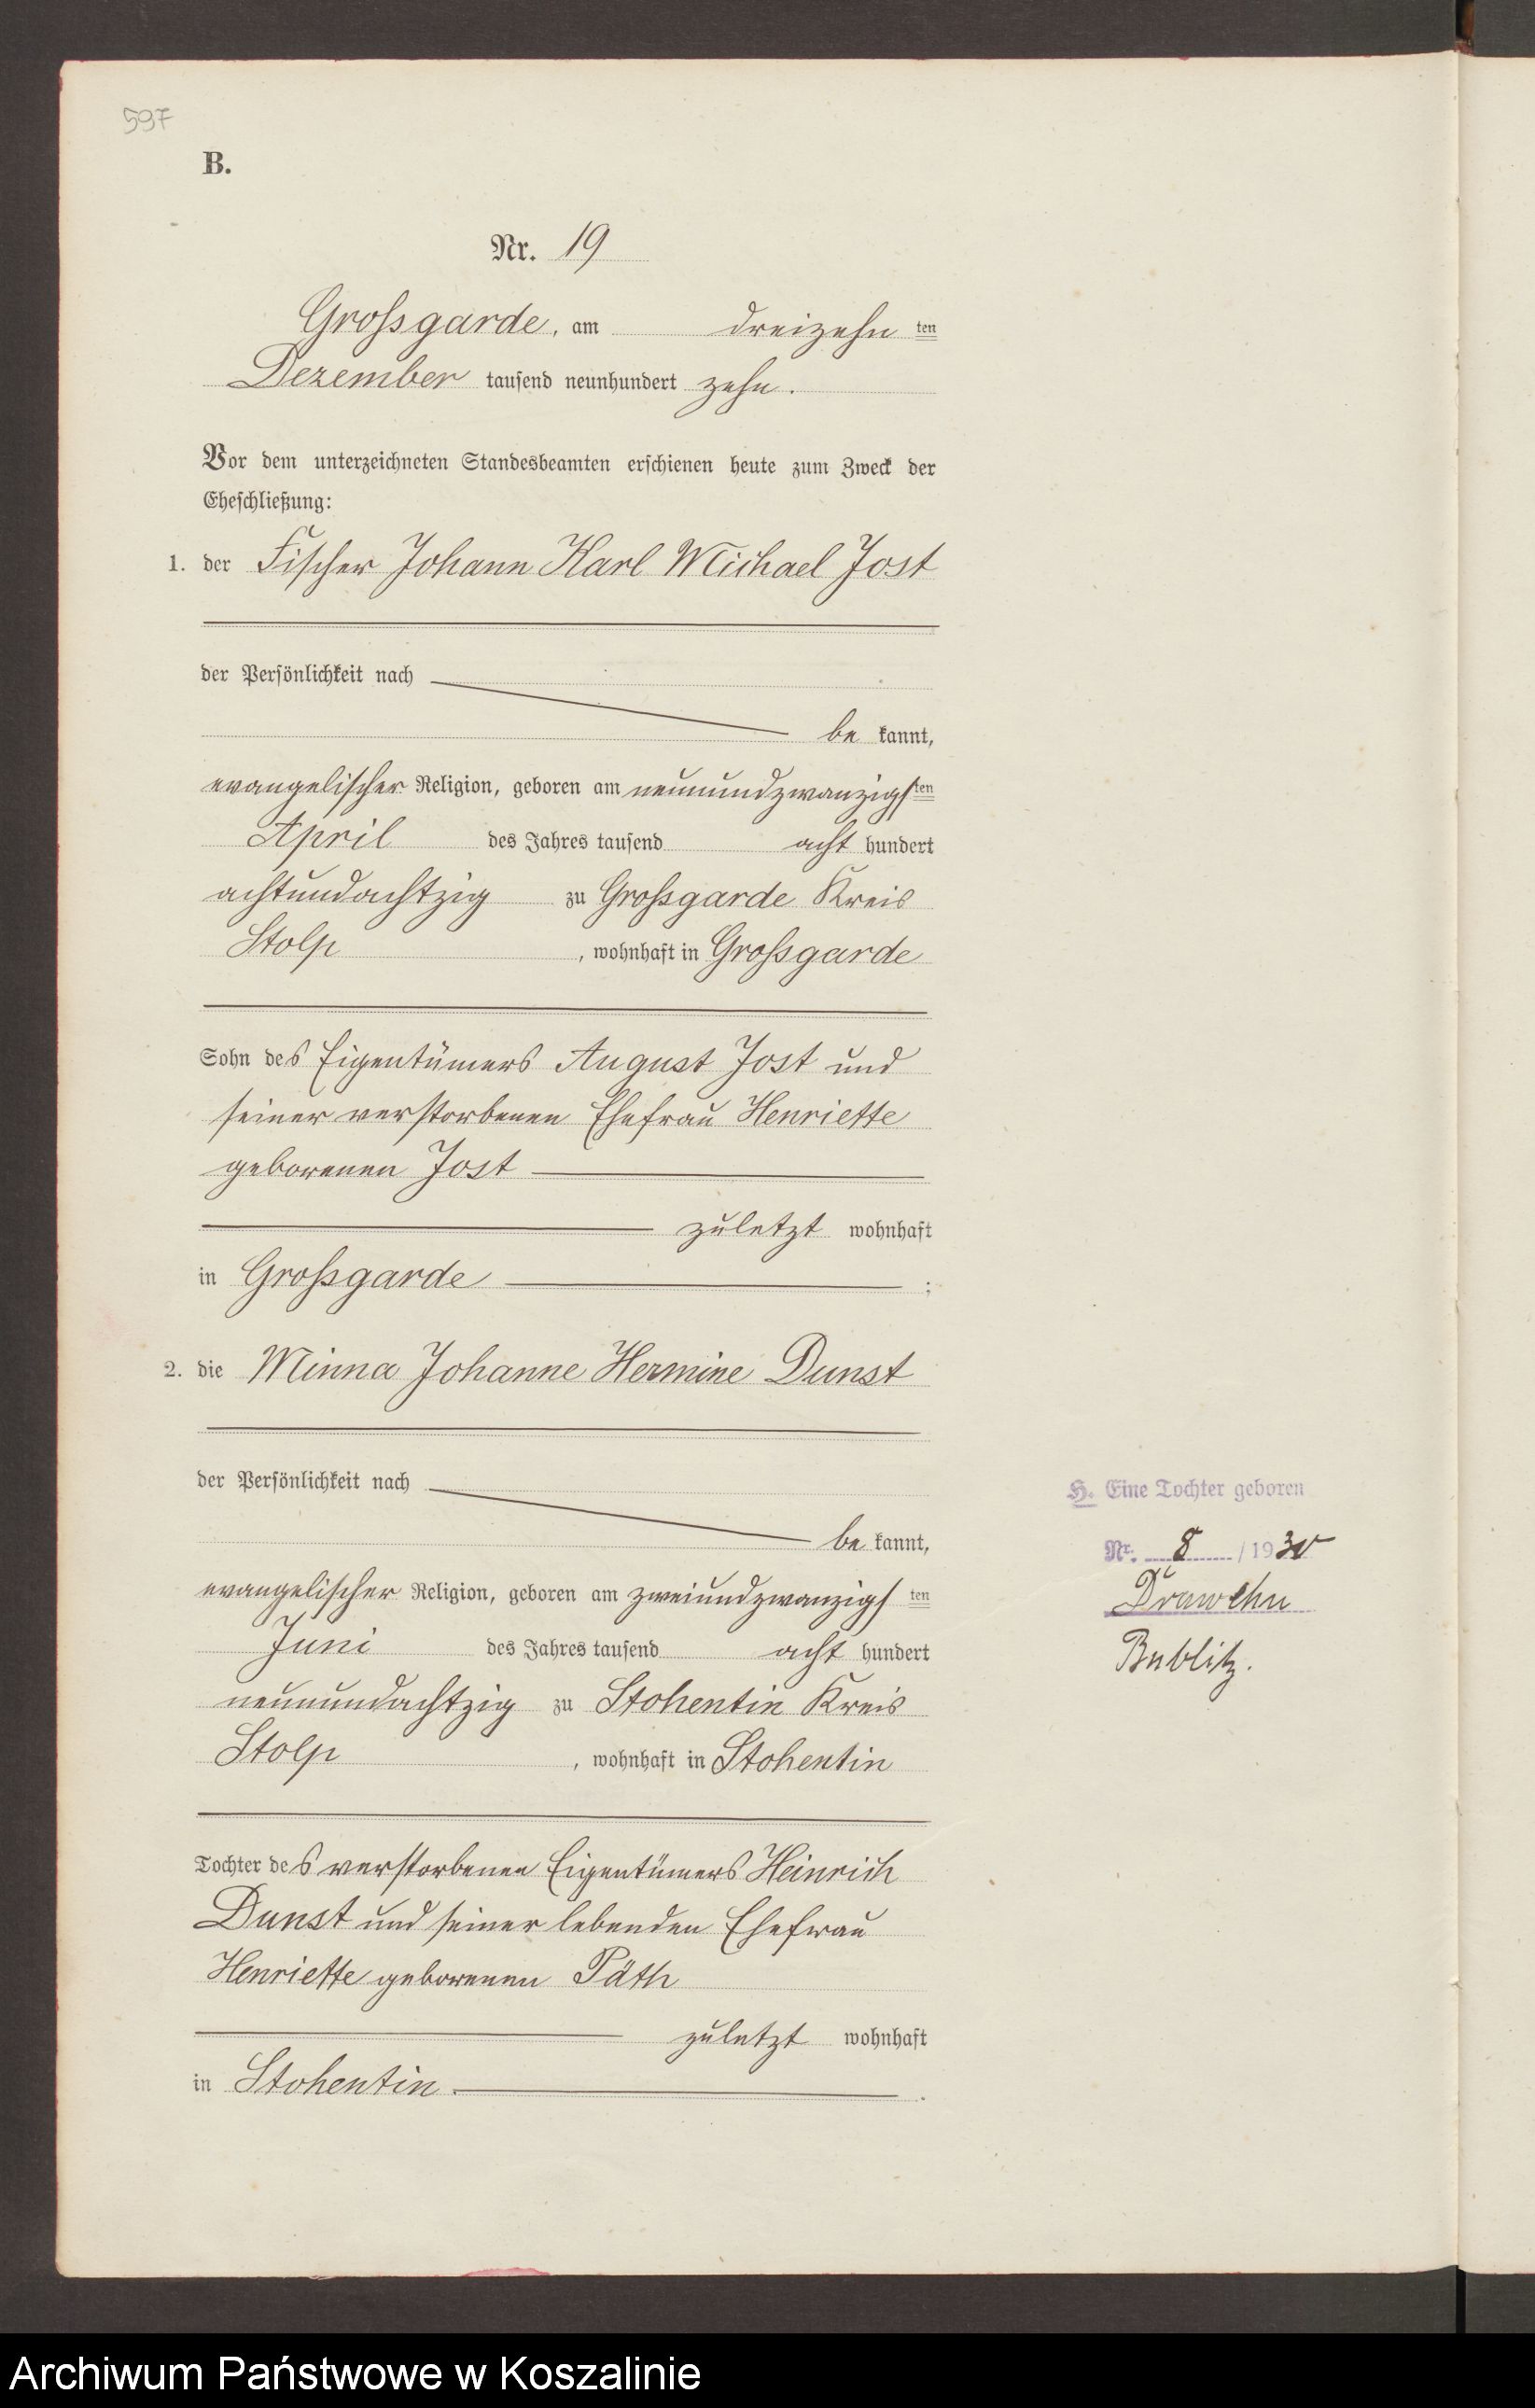 597
B.
Nr. 19
Grossgarde, am dreizehn ten
Dezember tausend neunhundert zehn.
Vor dem unterzeichneten Standesbeamten erschienen heute zum Zweck der
Eheschließung:
1. der Fischer Johann Karl Michael Jost
der Persönlichkeit nach
be kannt,
evangelischer Religion, geboren am neunundzwanzigsten
April des Jahres tausend acht hundert
achtundachtzig zu Grossgarde Kreis
Stolp, wohnhaft in Grossgarde
Sohn des Eigentümers August Jost und
seiner verstorbenen Ehefrau Henriette
geborenen Jost
zuletzt wohnhaft
in Grossgarde ;
2. die Minna Johanne Hermine Dunst
der Persönlichkeit nach
be kannt,
evangelischer Religion, geboren am zweiundzwanzigsten
Juni des Jahres tausend acht hundert
neunundachtzig zu Stohentin Kreis
Stolp, wohnhaft in Stohentin
Tochter des verstorbenen Eigentümers Heinrich
Dunst und seiner lebenden Ehefrau
Henriette geborenen Päth
zuletzt wohnhaft
in Stohentin.
H. Eine Tochter geboren
Nr. 8 /1930
Drawehn
Bublitz.
Archiwum Państwowe w Koszalinie